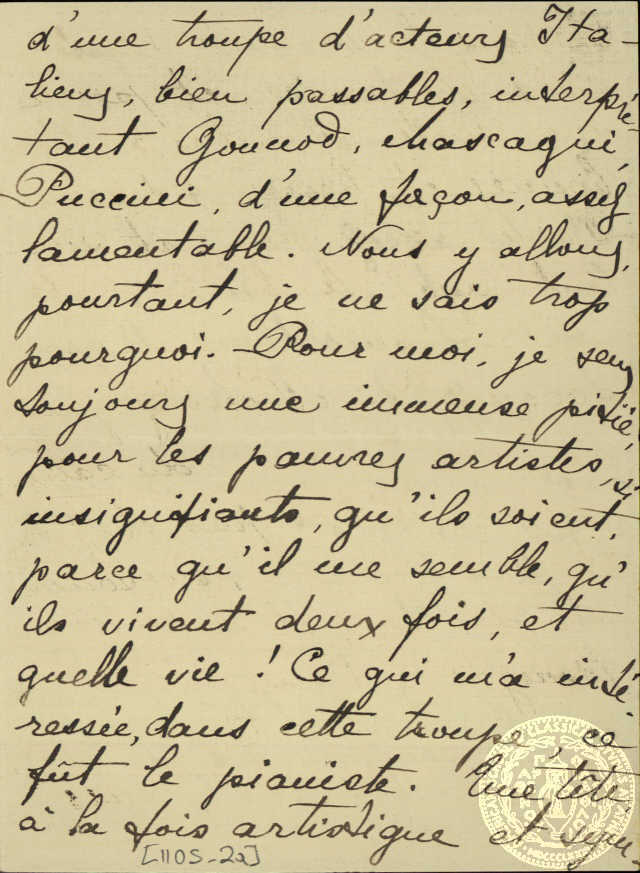 d'une troupe d'acteurs Ita-
liens, bien passables, interpré-
tant Gounod, Mascagni,
Puccini, d'une façon, assez
lamentable. Nous y allons,
pourtant, je ne sais trop
pourquoi. – Pour moi, je sens
toujours une immense pitié,
pour les pauvres artistes, si
insignifiants, qu'ils soient,
parce qu'il me semble, qu'
ils vivent deux fois, et
quelle vie ! Ce qui m'a inté-
ressée, dans cette troupe, ce
fût le pianiste. Une tête,
à la fois artistique et sym-
[1105-2a]